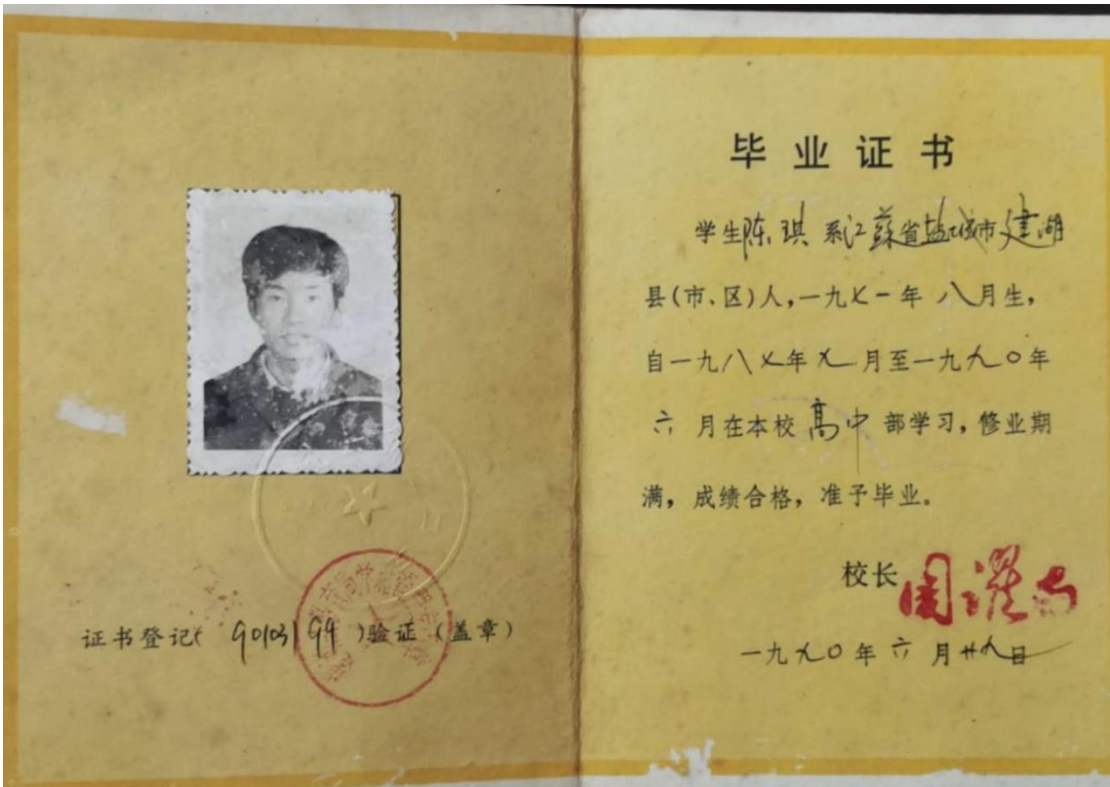 证书登记( 9010319９ )验证 (盖章)
毕业证书
学生陈琪系江蘇省盐城市建湖
县(市、区)人,一九七一年 八月生,
自一九八七年九月至一九九〇年
六月在本校高中部学习,修业期
满,成绩合格,准予毕业。
校长
一九九〇年六月廿九日